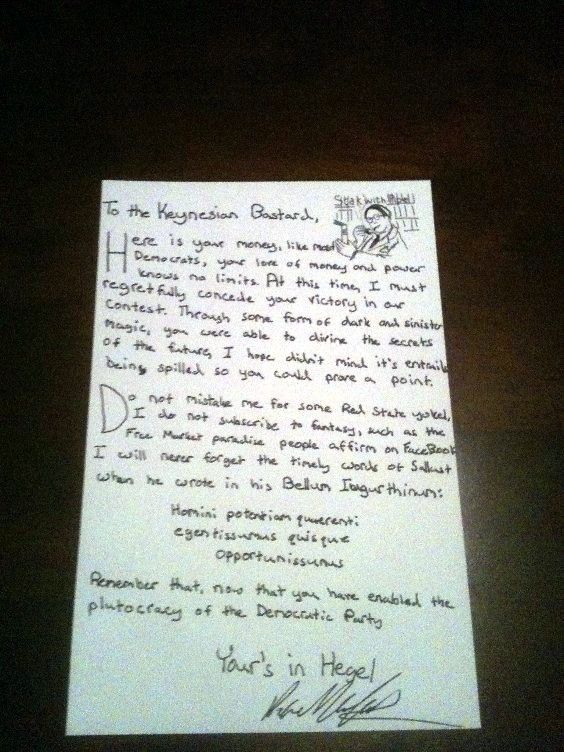 To the Keynesian Bastard,
Here is your money, like most
Democrats, your love of money and power
knows no limits. At this time, I must
regretfully concede your victory in our
contest. Through some form of dark and sinister
magic, you were able to divine the secrets
of the future, I hope didn't mind it's entrails
being spilled so you could prove a point.
Do not mistake me for some Red State yokel,
I do not subscribe to fantasy, such as the
Free Market paradise people affirm on FaceBook
I will never forget the timely words of Sallust
when he wrote in his Bellum Iugurthinum:
Homini potentiam quaerenti
egentissumus quisque
opportunissumus
Remember that, now that you have enabled the
plutocracy of the Democratic Party
Your's in Hegel